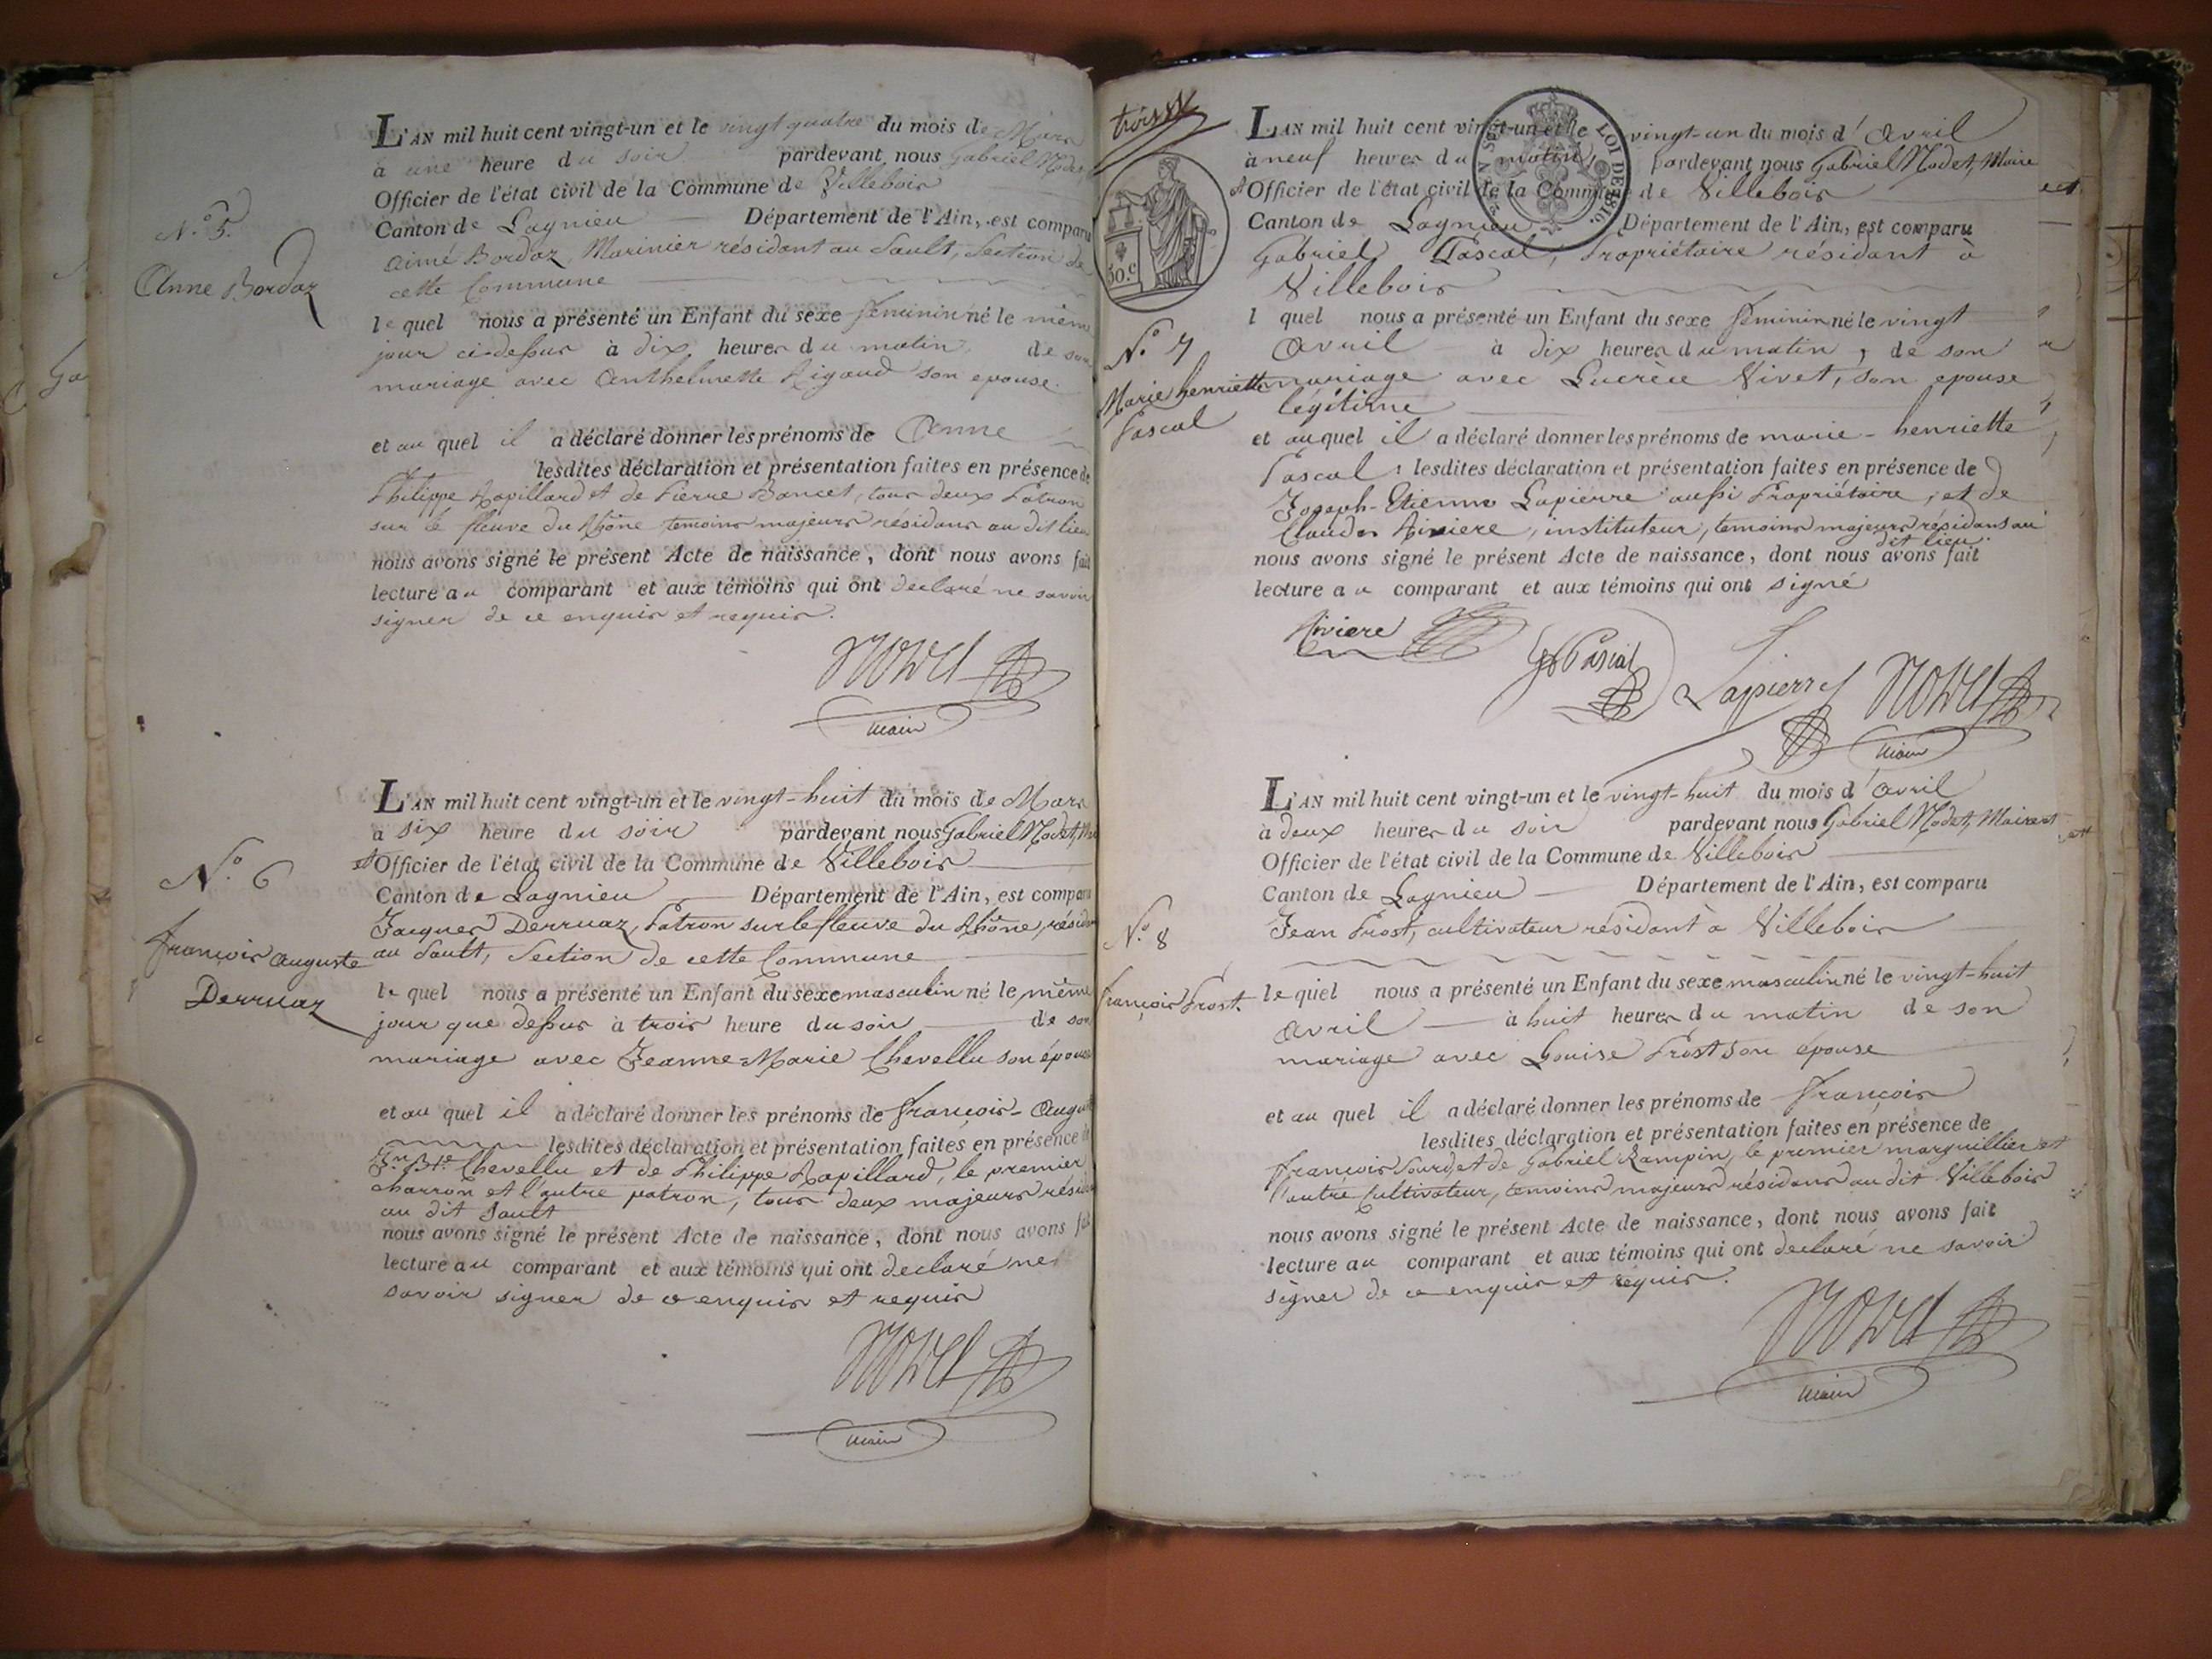 N.º 5.
Anne Bordaz
L'AN mil huit cent vingt-un et le vingt quatre du mois de Mars
à une heure du soir pardevant nous Gabriel Nodet
Officier de l'état civil de la Commune de Villebois
Canton de Lagnieu Département de l'Ain, est comparu
Aimé Bordaz, Marinier résidant au Sault, Section de
cette Commune
le quel nous a présenté un Enfant du sexe féminin né le même
jour ci-dessus à dix heures du matin, de son
mariage avec Anthelmette Rigaud son epouse.
et au quel il a déclaré donner les prénoms de Anne
lesdites déclaration et présentation faites en présence de
Philippe Rapillard et de Pierre Bancet, tous deux Patron
sur le fleuve du Rhône temoins majeurs résidans au dit lieu
nous avons signé le présent Acte de naissance, dont nous avons fait
lecture au comparant et aux témoins qui ont declaré ne savoir
signer de ce enquis et requis.
Nodet
Maire
N.º 6
françois auguste
Derruaz
L'AN mil huit cent vingt-un et le vingt-huit du mois de Mars
à six heure du soir pardevant nous Gabriel Nodet,
et Officier de l'état civil de la Commune de Villebois
Canton de Lagnieu Département de l'Ain, est comparu
Jacques Derruaz, Patron sur le fleuve du Rhône, résidant
au Sault, Section de cette Commune
le quel nous a présenté un Enfant du sexe masculin né le même
jour que dessus à trois heure du soir de son
mariage avec Jeanne-Marie Chevellu son épouse
et au quel il a déclaré donner les prénoms de françois-Auguste
lesdites déclaration et présentation faites en présence de
Jn Bte Chevellu et de Philippe Rapillard, le premier
charron et l'autre patron, tous deux majeurs résidans
au dit Sault
nous avons signé le présent Acte de naissance, dont nous avons fait
lecture au comparant et aux témoins qui ont declaré ne
savoir signer de ce enquis et requis
Nodet
Maire
trois
LOI DE 1816.
50.c
N.º 7
Marie henriette
Pascal
L'AN mil huit cent vingt-un et le vingt-un du mois d'Avril
à neuf heures du matin, pardevant nous Gabriel Nodet, Maire
et Officier de l'état civil de la Commune de Villebois
Canton de Lagnieu Département de l'Ain, est comparu
Gabriel Pascal, Propriétaire résidant à
Villebois
l quel nous a présenté un Enfant du sexe féminin né le vingt
Avril à dix heures du matin, de son
mariage avec Lucrèce Vivet, son epouse
légitime
et auquel il a déclaré donner les prénoms de marie-henriette
Pascal, lesdites déclaration et présentation faites en présence de
Joseph-Etienne Lapierre aussi Propriétaire, et de
Claude Riviere, instituteur, temoins majeurs résidans au
dit lieu.
nous avons signé le présent Acte de naissance, dont nous avons fait
lecture au comparant et aux témoins qui ont signé
Riviere
G Pascal
Lapierre
Nodet
Maire
N.º 8
françois Prost.
L'AN mil huit cent vingt-un et le vingt-huit du mois d'avril
à deux heures du soir pardevant nous Gabriel Nodet, Maire et
Officier de l'état civil de la Commune de Villebois
Canton de Lagnieu Département de l'Ain, est comparu
Jean Prost, cultivateur résidant à Villebois
le quel nous a présenté un Enfant du sexe masculin né le vingt-huit
Avril à huit heures du matin de son
mariage avec Louise Prost son épouse
et au quel il a déclaré donner les prénoms de françois
lesdites déclaration et présentation faites en présence de
françois Sourd et de Gabriel Rampin, le premier marguillier et
l'autre Cultivateur, temoins majeurs résidans au dit Villebois
nous avons signé le présent Acte de naissance, dont nous avons fait
lecture au comparant et aux témoins qui ont declaré ne savoir
signer de ce enquis et requis.
Nodet
Maire